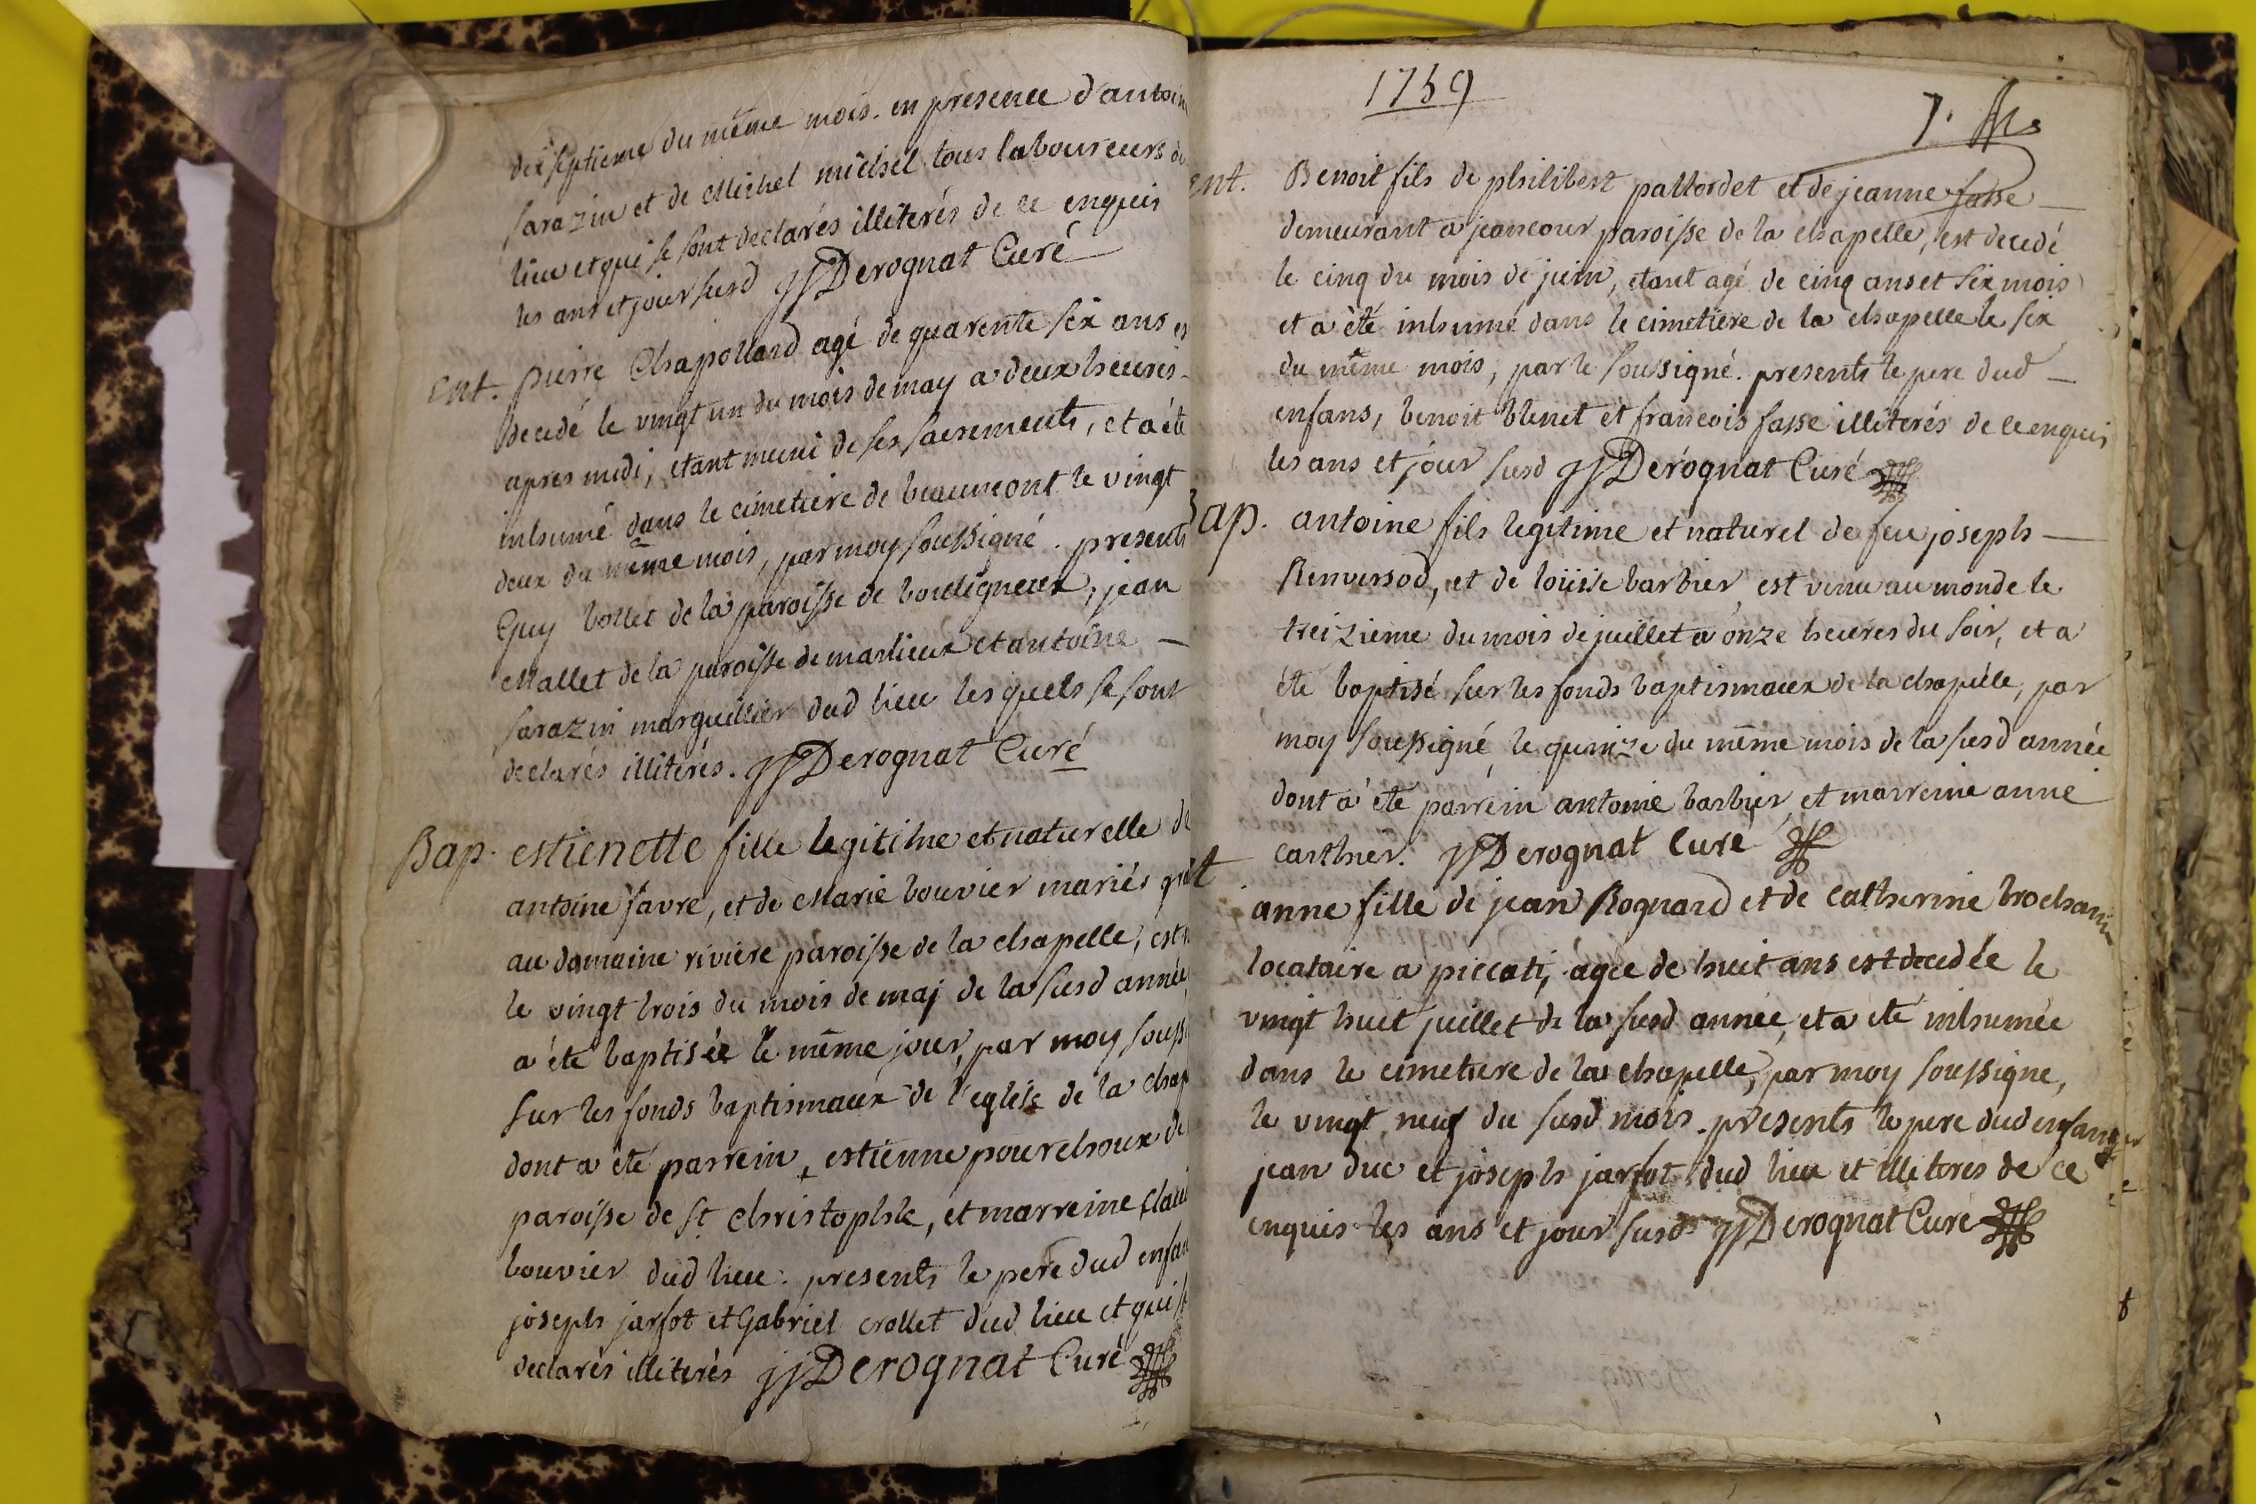 dix septieme du même mois. en presence d'antoin
sarazin et de Michel michel tous laboureurs du
lieu et qui se sont declarés illiterés de ce enquis
les ans et jour susd JJDerognat Curé
Ent. pierre Chapolland agé de quarente six ans es
decedé le vingt un du mois de may a deux heures
apres midi, etant muni de ses sacrements, et a été
inhumé dans le cimetiere de beaumont le vingt
deux du même mois, par moy soussigné. presents
Guy bollet de la paroisse de bouligneux, jean
Mallet de la paroisse de marlieux et antoine
sarazin marguillier dud lieu lesquels se sont
declarés illiterés. JJDerognat Curé
Bap. estienette fille legitime et naturelle de
antoine favre, et de Marie bouvier mariés
au domaine riviere paroisse de la chapelle, est
le vingt trois du mois de maj de la susd année
a été baptisée le même jour, par moy souss
sur les fonds baptismaux de l'eglise de la chap
dont a été parrein estienne pourchoux de
paroisse de st christophle, et marreine clau
bouvier dud lieu. presents le pere dud enfan
joseph jarfot et Gabriel crollet dud lieu et qui s
declarés illiterés JJDerognat Curé
1759
7.
Ent. Benoit fils de philibert paltordet et de jeanne fasse
demeurant a jeancour paroisse de la chapelle, est decedé
le cinq du mois de juin, etant agé de cinq ans et six mois
et a été inhumé dans le cimetiere de la chapelle le six
du même mois, par le sousigné. presents le pere dud
enfans, benoit blenet et francois fasse illiterés de ce enquis
les ans et jour susd JJDerognat Curé
Bap. antoine fils legitime et naturel de feu joseph
Renversod, et de loüise barbier est venu au monde le
treizieme du mois de juillet a onze heures du soir, et a
été baptisé sur les fonds baptismaux de la chapelle, par
moy soussigné le quinze du même mois de la susd année
dont a été parrein antoine barbier et marreine anne
carthier. JJDerognat Curé
t anne fille de jean Rognard et de catherine brochan
locataire a piccati, agée de huit ans est decedée le
vingt huit juillet de la susd année, et a été inhumée
dans le cimetiere de la chapelle, par moy soussigne,
le vingt neuf du susd mois. presents le pere dud enfans
jean duc et joseph jarfot dud lieu et illiteres de ce
enquis les ans et jour susds JJDerognat Curé